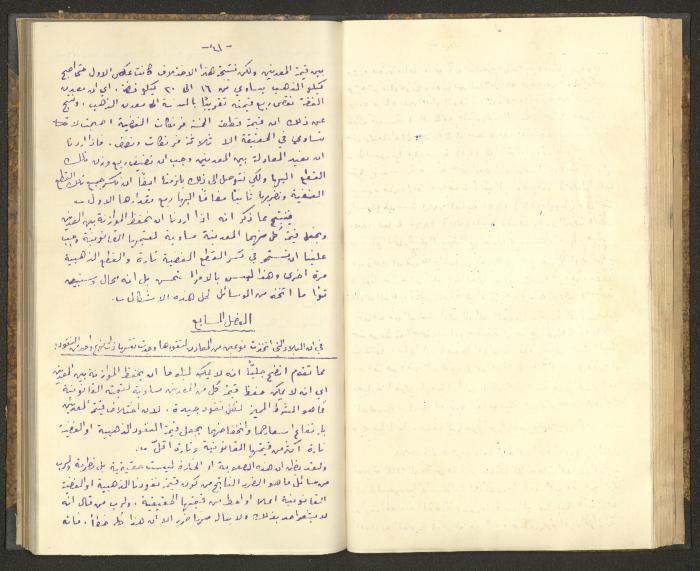 -٦١-
بين قيمة المعدنين ولكن نتيجة هذا الاختلاف كانت عكس الاول حتى اصبح
كيلو الذهب يساوي من ١٦ الى ٢٠ كيلو فضة. اي ان معدن
الفضة نقص ربع قيمته تقريبًا بالنسبة الى معدن الذهب. ونتج
عن ذلك ان قيمة قطعة الخمسة فرنكات الفضية اصبحت لا
تساوي في الحقيقة الا ثلاثة فرنكات ونصف. فاذا اردنا
ان نعيد المعادلة بين المعدنين وجب ان نضيف ربع وزن تلك
القطع اليها ولكي نتوصل الى ذلك يلزمنا ايضًا ان نكسر جميع تلك القطع
العتيقة ونضربها ثانيًا مضافًا اليها ربع مقدارها الاول
فينتج مما ذكر انه اذا اردنا ان نحفظ الموازنة بين المعدنين
ونجعل قيمة كل منهما المعدنية مساوية لقيمتها القانونية وجب
علينا ان نستمر في كسر القطع الفضية تارة والقطع الذهبية
مرة اخرى وهذا ليس بالامر المستحسن بل انه محال وسنبين
ما اتخذ من الوسائل لحل هذه الاشكال
الفصل السابع
في ان البلاد التي اتخذت نوعين من المعادن لنقودها وجدت نفسها في واحد من النقود
مما تقدم اتضح جليًا انه لا يمكن لبلد ما ان يحفظ الموازنة بين المعدنين
اي انه لا يمكن حفظ قيمة كل من المعدنين مساوية لقيمته القانونية
كما هو الشرط المميز لكل نقود جيدة. لان اختلاف قيمة المعدنين
بارتفاع اسعارهما وانخفاضهما يجعل قيمة النقود الذهبية او الفضية
تارة اكثر من قيمتها القانونية وتارة اقل
ولقد يظن ان هذه الصعوبة او ليست حقيقية بل نظرية ولرب
من سائل ما هو الضرر الناتج من كون قيمة نقودنا الذهبية او الفضية
القانونية اعلا او احط من قيمتها الحقيقية. ولرب من قال انه
لا بذلك ولا ينال منها ضرر الا ان هذا كله خطأ. فانه